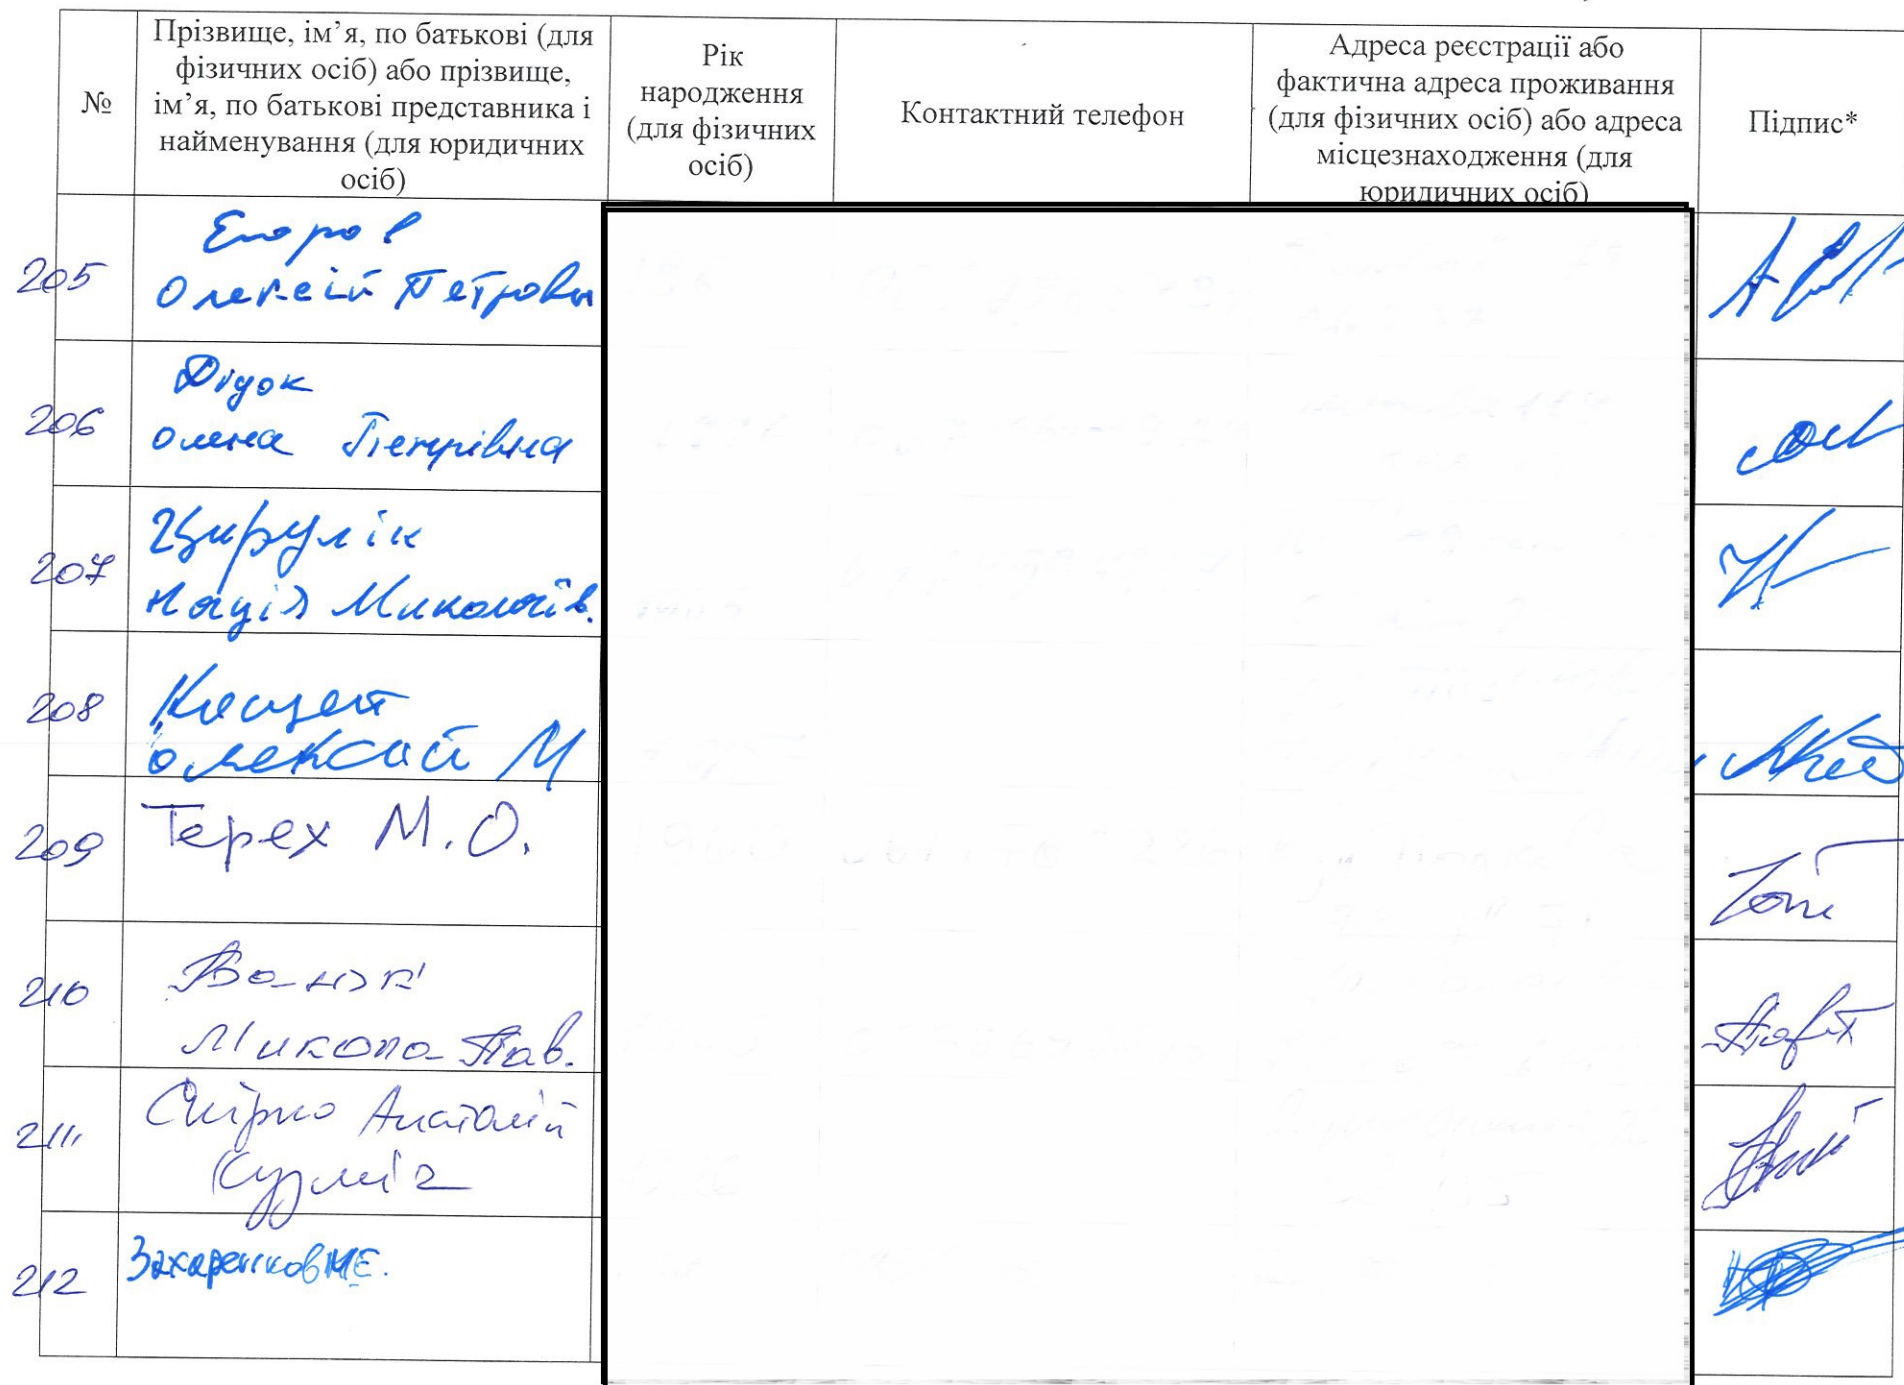 №
Прізвище, ім’я, по батькові (для
фізичних осіб) або прізвище,
ім’я, по батькові представника і
найменування (для юридичних
осіб)
Рік
народження
(для фізичних
осіб)
Контактний телефон
Адреса реєстрації або
фактична адреса проживання
(для фізичних осіб) або адреса
місцезнаходження (для
юридичних осіб)
Підпис*
205
Егоров
Олексій Петрович
206
Дідок
Олена Петрівна
207
Цирулік
Надія Миколаїв.
208
Олексий М
209
Терех М.О.
210
Микола Пав.
211
Анатолій
Кузміч
212
Захаренков М.Є.